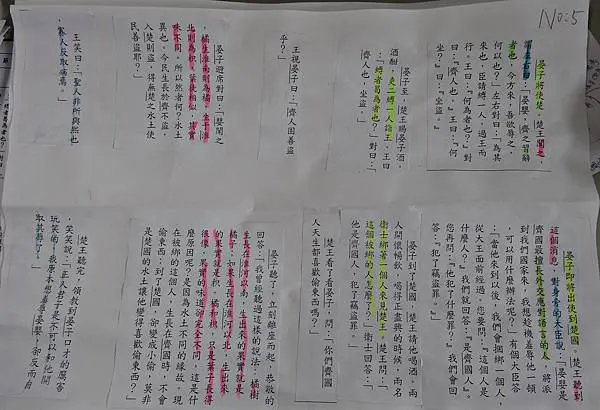 No:5
晏子將使楚。楚王聞之,
謂左右曰:「晏嬰,齊之習辭
者也,今方來,吾欲辱之,
何以也?」左右對曰:「為其
來也,臣請縛一人,過王而
行。王曰:『何為者也?』對
曰:『齊人也。』王曰:『何
坐?』曰:『坐盜。』」
晏子至,楚王賜晏子酒。
酒酣,吏二縛一人詣王。王曰
:「縛者曷為者也?」對曰:「
齊人也,坐盜。」
王視晏子曰:「齊人固善盜
乎?」
晏子避席對曰:「嬰聞之
,橘生淮南則為橘,生于淮
北則為枳,葉徒相似,其實
味不同。所以然者何?水土
異也。今民生長於齊不盜,
入楚則盜,得無楚之水土使
民善盜耶?」
王笑曰:「聖人非所與熙也
,寡人反取病焉。」
晏子即將出使到楚國。楚王聽到
這個消息,對身旁的大臣說:「晏嬰是
齊國最擅長外交應對語言的人,將派
到我們國家來,我想趁機羞辱他一頓
,可以用什麼辦法呢?」有個大臣答
:「當他來到以後,我們會捆綁一個人,
從大王面前經過,您要問:『這個人是
什麼人?』我們就回答:『是齊國人。』
您再問:『他犯了什麼罪?』我們會回
答:『犯了竊盜罪。』」
晏子到了楚國,楚王請他喝酒,兩
人開懷暢飲,喝得正盡興的時候,兩名
衛士綁著一個人來見楚王。楚王問:「
這個被綁的人怎麼了?」衛士回答:「
他是齊國人,犯了竊盜罪。」
楚王看了看晏子,問:「你們齊國
人天生都喜歡偷東西嗎?」
晏子聽了,立刻離座而起,恭敬的
回答:「我曾經聽過這樣的說法,橘樹
生長在淮河以南,生出來的果實就是
橘子,如果生長在淮河以北,生出來
的果實就是枳。橘和枳,只是葉子長得
很像,果實的味道卻完全不同,這是什
麼原因呢?是因為水土不同的緣故。現
在被綁的這個人,生長在齊國時,不會
偷東西,到了楚國,卻變成小偷,莫非
是楚國的水土讓他變得喜歡偷東西?」
楚王聽完,領教到晏子口才的厲害
,笑笑說:「正人君子是不可以和他開
玩笑的,我原本想羞辱晏嬰,卻反而自
取其辱了。」